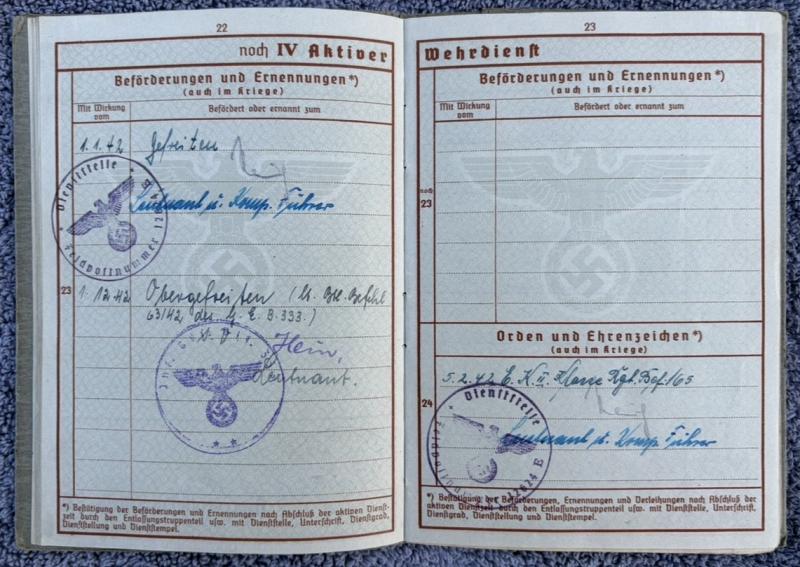 22
noch IV Aktiver
Beförderungen und Ernennungen*)
(auch im Kriege)
Mit Wirkung vom
Befördert oder ernannt zum
1.1.42 Gefreiten
Dienststelle
Feldpostnummer
Leutnant u. Komp. Führer
23 1.12.42 Obergefreiten (lt. Btl. Befehl
63/42 des G. E. B. 333.)
Leutnant.
*) Bestätigung der Beförderungen und Ernennungen nach Abschluß der aktiven Dienst-
zeit durch den Entlassungstruppenteil usw. mit Dienststelle, Unterschrift, Dienstgrad,
Dienststellung und Dienststempel.
23
Wehrdienst
Beförderungen und Ernennungen*)
(auch im Kriege)
Mit Wirkung vom
Befördert oder ernannt zum
noch
23
Orden und Ehrenzeichen*)
(auch im Kriege)
5.2.42 E. K. II. Klasse Rgt. Bef. 165
24
Dienststelle
Leutnant u. Komp. Führer
*) Bestätigung der Beförderungen, Ernennungen und Verleihungen nach Abschluß der
aktiven Dienstzeit durch den Entlassungstruppenteil usw. mit Dienststelle, Unterschrift,
Dienstgrad, Dienststellung und Dienststempel.